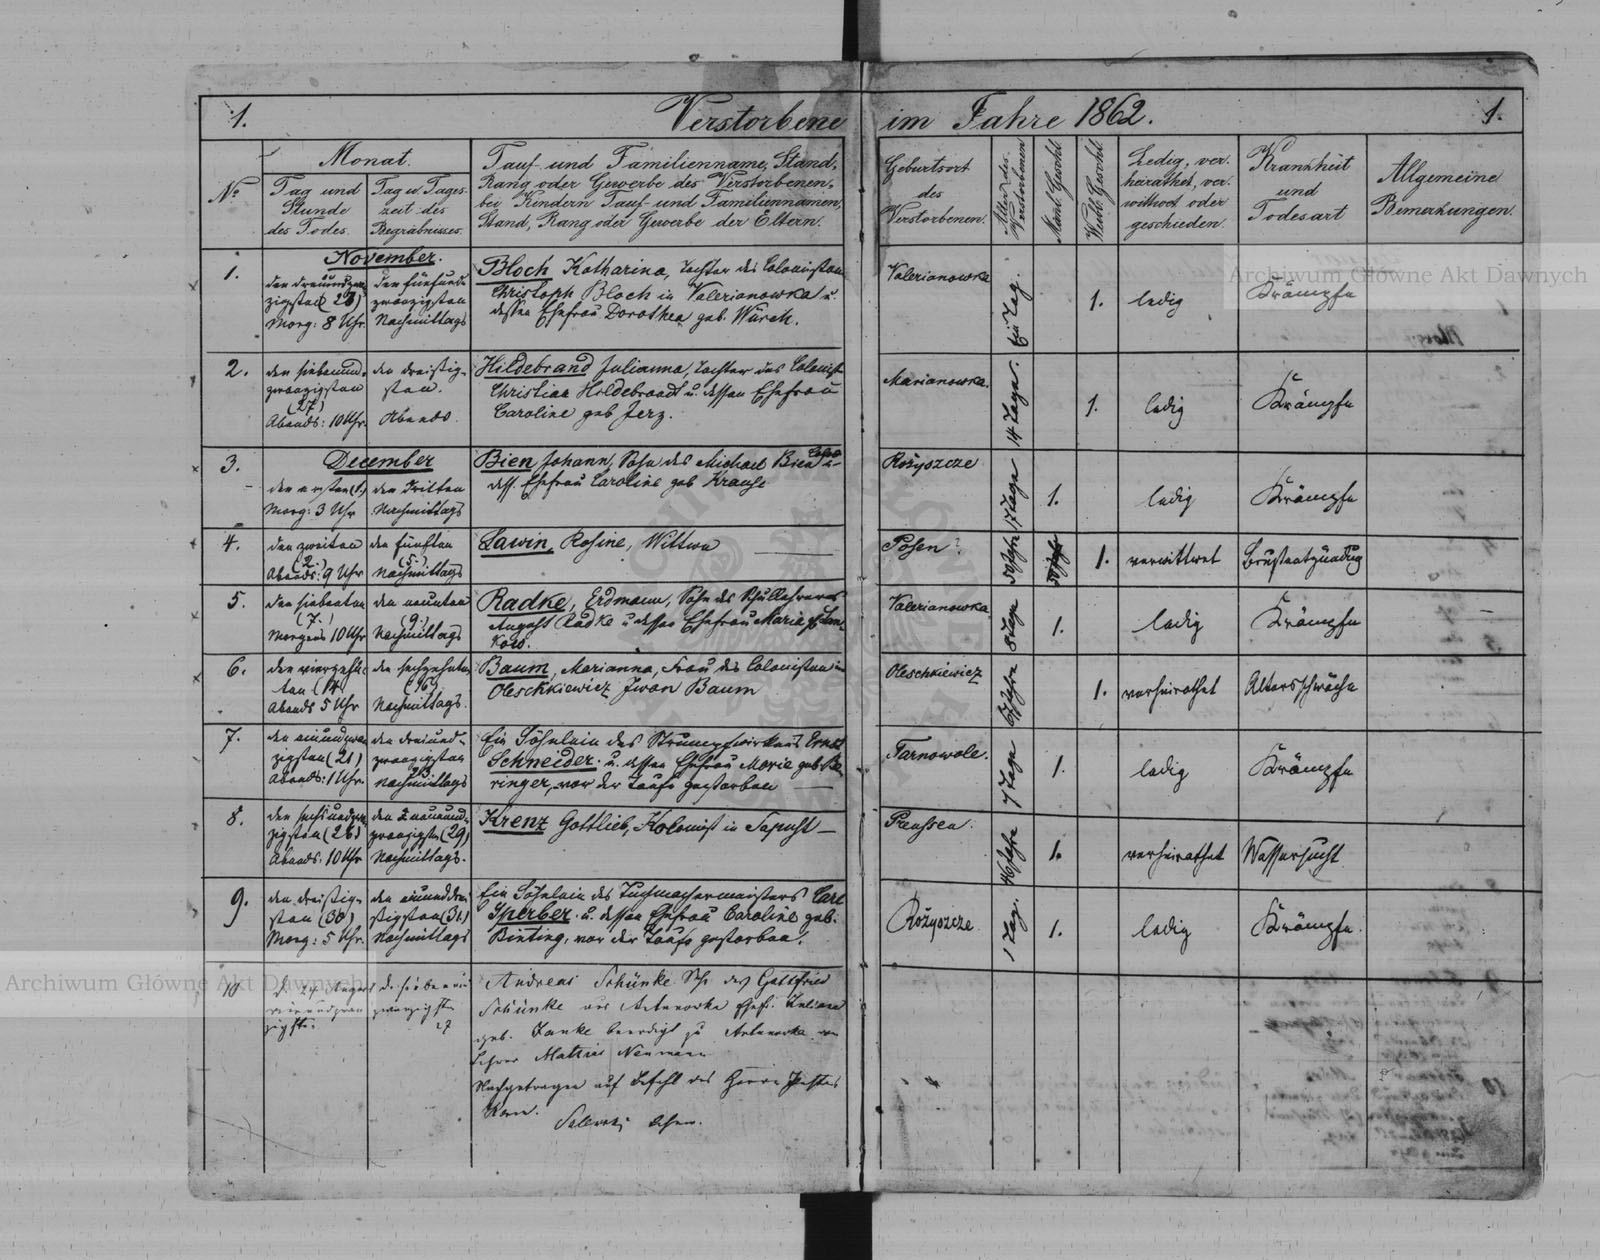 1.
Verstorbene im Jahre 1862.
1.
No
Monat.
Tag und
Stunde
des Todes.
Tag u. Tages-
zeit des
Begräbnisses.
Tauf- und Familienname, Stand,
Rang oder Gewerbe des Verstorbenen,
bei Kindern Tauf- und Familiennamen,
Stand, Rang oder Gewerbe der Eltern.
Geburtsort
des
Verstorbenen.
Alter des
Verstorbenen
Männl. Geschl.
Weibl. Geschl.
Ledig, ver-
heirathet, ver-
wittwet oder
geschieden.
Krankheit
und
Todesart
Allgemeine
Bemerkungen.
1.
November.
den dreiundzwan-
zigsten (23)
Morg: 8 Uhr.
den fünfund-
zwanzigsten
Nachmittags
Bloch Katharina, Tochter des Colonisten
Christoph Bloch in Valerianowka u.
dessen Ehefrau Dorothea geb. Würch.
Valerianowka
Ein Tag.
1.
ledig
Krämpfe
2.
den siebenund-
zwanzigsten
(27)
Abends: 10 Uhr.
den dreißig-
sten.
Abends.
Hildebrand Julianna, Tochter des Colonist
Christian Hildebrandt u. dessen Ehefrau
Caroline geb Jerz.
Marianowka.
14 Tage.
1.
ledig
Krämpfe
3.
December
den ersten (1.)
Morg: 3 Uhr
den dritten
Nachmittags
Bien Johann, Sohn des Michael Bien u.
dess. Ehefrau Caroline geb Krause
Rožyszcze
17 Tage
1.
ledig
Krämpfe
4.
den zweiten
(2.)
Abends: 9 Uhr
den fünften
(5.)
Nachmittags
Lawin, Rosine, Wittwe
Posen?
50 Jahre
1.
verwittwet
Brustentzündug
5.
den siebenten
(7.)
Morgens 10 Uhr
den neunten
(9.)
Nachmittags
Radke, Erdmann, Sohn des Schullehrers
August Radke u dessen Ehefrau Marie g. Lan-
kow.
Valerianowka
8 Tage
1.
ledig
Krämpfe
6.
den vierzehn-
ten (14)
Abends 5 Uhr
den sechzehnten
(16)
Nachmittags.
Baum, Marianna, Frau des Colonisten in
Oleschkiewicz Iwan Baum
Oleschkiewicz
67 Jahre
1.
verheirathet
Altersschwäche
7.
den einundzwan-
zigsten (21)
Abends: 1 Uhr.
den dreiund-
zwanzigsten
Nachmittags
Ein Söhnlein des Strumpfwirkers Ernst
Schneider u. dessen Ehefrau Marie geb. Be-
ringer, vor der Taufe gestorben
Tarnowole.
7 Tage
1.
ledig
Krämpfe
8.
den sechsundzwan-
zigsten (26)
Abends: 10 Uhr
den neunund-
zwanzigsten (29)
Nachmittags.
Krenz Gottlieb, Kolonist in Sapust
Preussen.
46 Jahre
1.
verheirathet
Wassersucht
9.
den dreißig-
sten (30)
Morg: 5 Uhr.
den einunddrei-
ßigsten (31.)
Nachmittags
Ein Söhnlein des Tuchmachermeisters Carl
Sperber u. dessen Ehefrau Caroline geb:
Binting, vor der Taufe gestorben.
Rožyszcze
1 Tag.
1.
ledig
Krämpfe.
10
zigsten
d. siebenund
zwanzigsten
27
Andreas Schünke S. des Gottfried
Schünke aus Antonowka Ehefr. Juliane
geb. Janke beerdigt zu Antonowka von
Lehrer Mathias Neumann
Nachgetragen auf Befehl des Herrn Pastor
Kern.
Archiwum Główne Akt Dawnych
Archiwum Główne Akt Dawnych